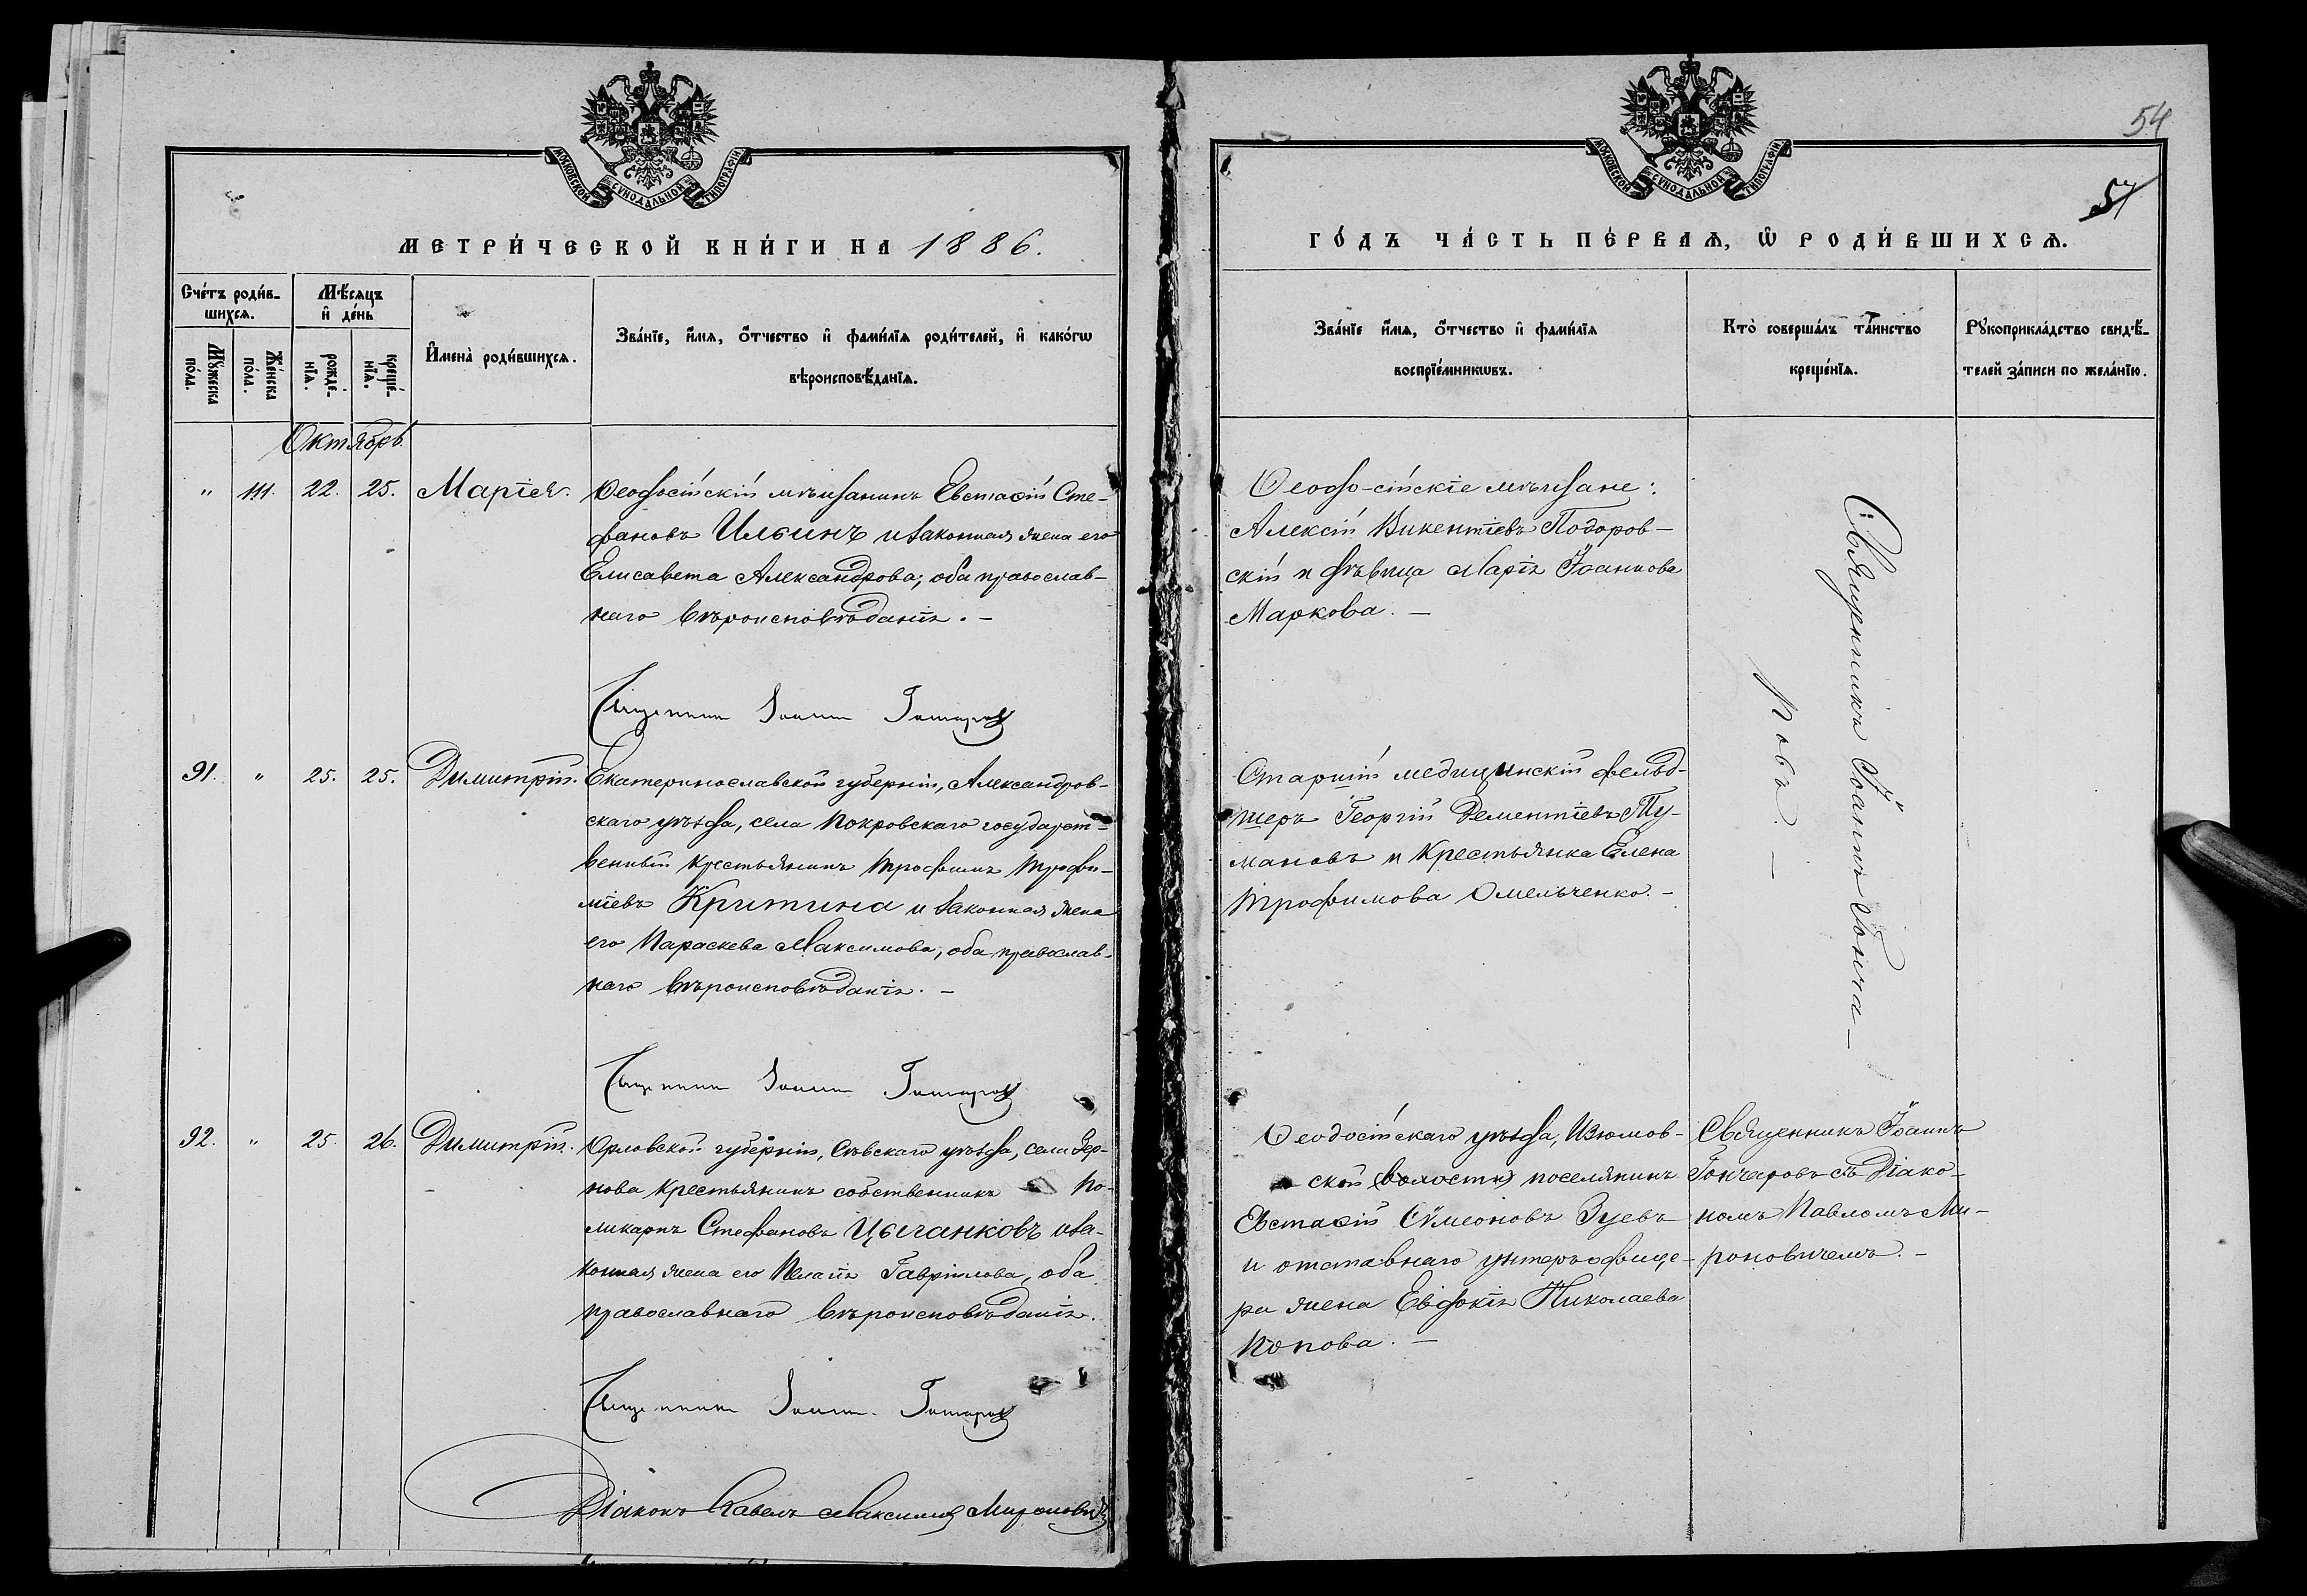 МОСКОВСКОЙ СУНОДАЛЬНОЙ ТИПОГРАФІИ
МЕТРИ́ЧЕСКОЙ КНИ́ГИ НА 1886.
Сче́тъ роди́в-
шихсѧ.
Мꙋ́жеска
по́ла.
Же́нска
по́ла.
Мѣ́сѧцъ
и҆ де́нь
рожде́-
нїѧ.
креще́-
нїѧ.
И҆мена̀ роди́вшихсѧ.
Зва́нїе, и҆́мѧ, ѻ҆́тчество и҆ фами́лїѧ роди́телей, и҆ како́гѡ
вѣроисповѣ́данїѧ.
Октябрь.
" 111. 22. 25. Марія.
Ѳеодосійскій мѣщанинъ Евстаѳій Сте-
фановъ Ильинъ и законная жена его
Елисавета Александрова; оба православ-
наго вѣроисповѣданія. –
Священникъ Іоаннъ Гончаровъ
91. " 25. 25. Димитрій.
Екатеринославской губерніи, Александров-
скаго уѣзда, села Покровскаго государст-
венный крестьянинъ Трофимъ Трофи-
міевъ Критина и законная жена
его Параскева Максимова, оба православ-
наго вѣроисповѣданія. –
Священникъ Іоаннъ Гончаровъ
92. " 25. 26. Димитрій.
Орловской губерніи, Сѣвскаго уѣзда, села Зер-
нова крестьянинъ собственникъ По-
ликарпъ Стефановъ Цыганковъ и за-
конная жена его Пелагія Гавріилова, оба
православнаго вѣроисповѣданія.
Священникъ Іоаннъ Гончаровъ
Діаконъ Павелъ Максимовъ Мироновичъ
54
54
МОСКОВСКОЙ СУНОДАЛЬНОЙ ТИПОГРАФІИ
ГО́ДЪ ЧА́СТЬ ПЕ́РВАѦ, Ѡ҆ РОДИ́ВШИХСѦ.
Зва́нїе и҆́мѧ, ѻ҆́тчество и҆ фами́лїѧ
воспрїе́мникѡвъ.
Кто̀ соверша́лъ та́инство
креще́нїѧ.
Рꙋкоприкла́дство свидѣ́-
телей за́писи по жела́нїю.
Ѳеодо-сійскіе мѣщане:
Алексій Викентіевъ Подоров-
скій и дѣвица Марія Іоаннова
Маркова. –
Священникъ Іоаннъ Гонча-
ровъ. –
Старшій медицинскій фельд-
шеръ Георгій Дементіевъ Ту-
мановъ и крестьянка Елена
Трофимова Омельченко. –
Ѳеодосійскаго уѣзда, Изюмов-
ской (волости) поселянинъ
Евстаѳій Сѵмеоновъ Зуевъ
и отставнаго унтеръ-офице-
ра жена Евдокія Николаева
Попова. –
Священникъ Іоаннъ
Гончаровъ съ Діако-
номъ Павломъ Ми-
роновичемъ. –